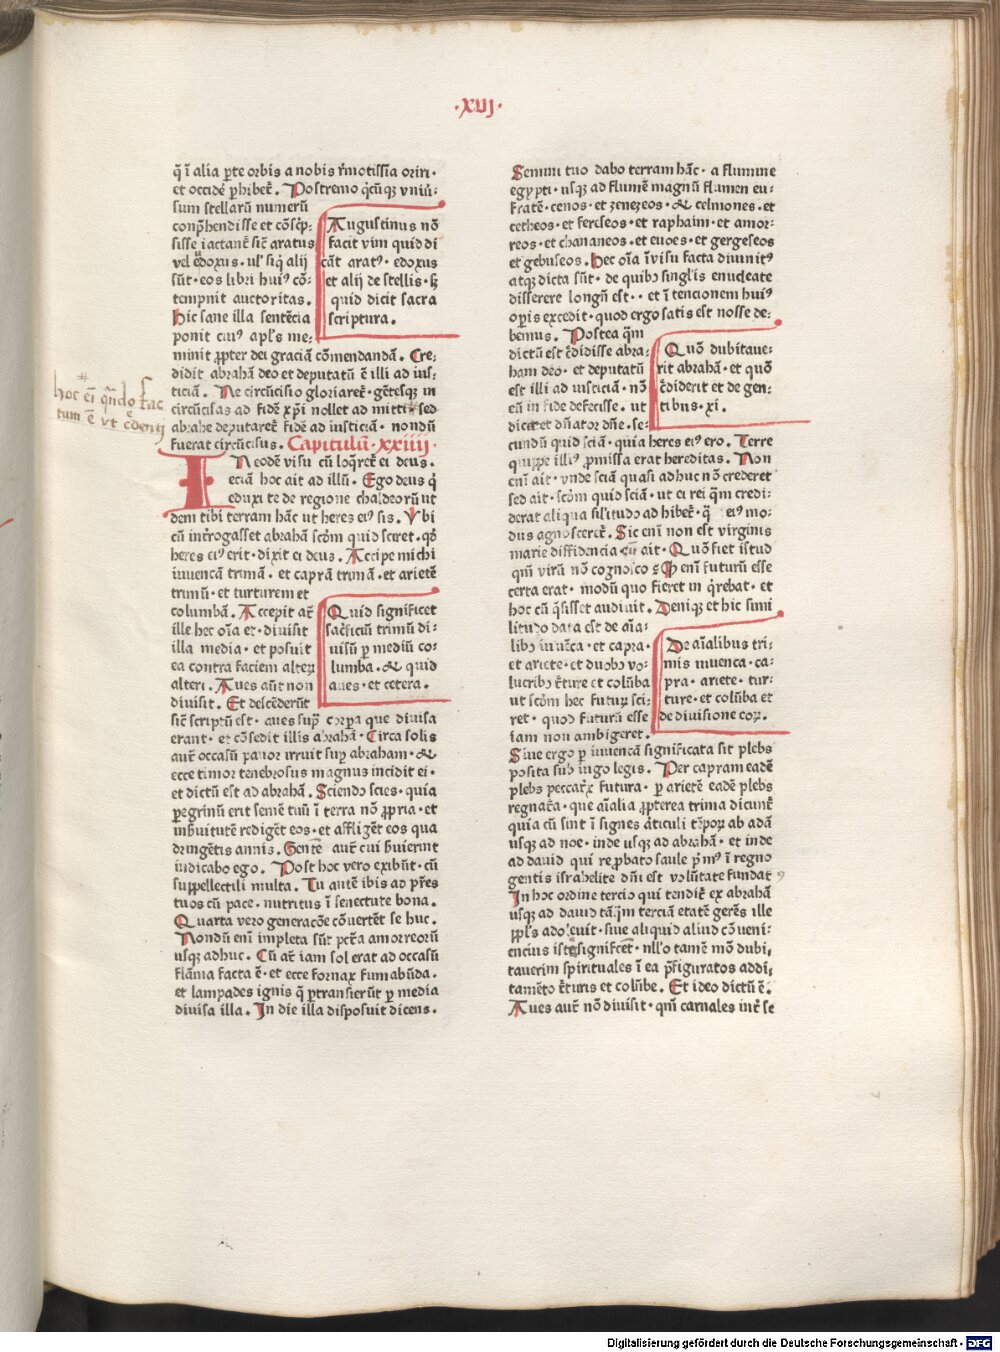 ·xvij·
q̄ ī alia ꝑte orbis a nobis r̄motissīa oriri·
et occidē ꝑhibet̄. Postremo q̄cūqꝫ vniū⸗
sum stellarū numerū
conp̄hendisse et cōsc̄p⸗
sisse iactant̄ sic̄ aratus
vel edoxus· ul' siq̄ alij
sūt· eos libri huiꝰ cō⸗
tempnit auctoritas.
Hic sane illa sentēcia
ponit cuiꝰ apl's me⸗
minit ꝓpter dei graciā cōmendandā. Cre⸗
didit abrahā deo et deputatū ē illi ad ius⸗
ticiā. Ne circūcisio gloriaret̄· gētesqꝫ in
circūcisas ad fidē xp̄i nollet ad mitti· sed
abrahe deputaret̄ fidē ad iusticiā· nondū
fuerat circūcisus. Capitulū·xxiiij·
Augustinus nō
facit vim quid di
cāt aratꝰ· edoxus
et alij de stellis· sꝫ
quid dicit sacra
scriptura.
hoc ei q̄ndo fac
tum ē vt c̄denti
IN eodē visu cū loq̄ret̄ ei deus.
eciā hoc ait ad illū. Ego deus q̄
eduxi te de regione chaldeorū ut
dem tibi terram hāc ut heres eiꝰ sis. Vbi
cū int̄rogasset abrahā scd̄m quid sciret· qd̄
heres eiꝰ erit· dixit ei deus. Accipe michi
iuuencā trimā· et caprā trimā· et arietē
trimū· et turturem et
columbā. Accepit at̄
ille hec oīa et· diuisit
illa media· et posuit
ea contra faciem alteꝝ
alteri. Aues aūt non
diuisit. Et descēderūt
sic̄ scriptū est· aues sup̄ corpa que diuisa
erant· et cōsedit illis abrahā· Circa solis
aut̄ occasū pauor irruit suꝑ abraham· &
ecce timor tenebrosus magnus incidit ei·
et dictū est ad abrahā. Sciendo scies· quia
ꝑegrinū erit semē tuū ī terra nō ꝓpria· et
in s̄uitutē redigēt eos· et affligēt eos qua
dringētis annis. Gentē aut̄ cui s̄uierint
iudicabo ego. Post hoc vero exibūt· cū
suppellectili multa. Tu autē ibis ad pr̄es
tuos cū pace· nutritus ī senectute bona.
Quarta vero generacōe cōuertēt se huc.
Nondū eni impleta sūt pctā amorreorū
usqꝫ adhuc. Cū at̄ iam sol erat ad occasū
flāma facta ē· et ecce fornax fumabūda.
et lampades ignis q̄ ꝑtransierūt ꝑ media
diuisa illa. In die illa disposuit dicens.
Quid significet
sac̄ficiū trimū di⸗
uisū ꝑ mediū co⸗
lumba· & quid
aues· et cetera.
Semini tuo dabo terram hāc· a flumine
egypti· usqꝫ ad flumē magnū flumen eu⸗
fratē· cenos· et zenezeos· & celmones· et
cetheos· et ferelseos· et raphaim· et amor⸗
reos· et chananeos· et euoes· et gergeseos
et gebuseos. Hec oīa ī visu facta diuinitꝰ
atqꝫ dicta sūt· de quibꝫ singl'is enucleate
disserere longū est·· et ī tencionem huiꝰ
oꝑis excedit· quod ergo satis est nosse de⸗
bemus. Postea q̄m
dictū est c̄didisse abra⸗
ham deo· et deputatū
est illi ad iusticiā· nō
eū in fide defecisse. ut
diceret dn̄ator dn̄e. se⸗
cundū quid sciā· quia heres eiꝰ ero. Terre
quippe illiꝰ ꝓmissa erat hereditas. Non
eni ait· vnde sciā quasi adhuc nō crederet
sed ait· scd̄m quid sciā· ut ei rei q̄m credi⸗
derat aliqua sil'itudo ad hibet̄· q̄ eiꝰ mo⸗
dus agnosceret̄. Sic eni non est virginis
marie diffidencia cū ait· Quō fiet istud
qm̄ virū nō cognosco ꝙ eni futurū esse
certa erat· modū quo fieret in q̄rebat· et
hoc cū q̄sisset audiuit. Denique et hic simi
litudo data est de aīa⸗
libꝫ iuuēca· et capra·
et ariete· et duobꝫ vo⸗
lucribꝫ t̄ture et colūba
ut scd̄m hec futuꝝ sci⸗
ret· quod futurū esse
iam non ambigeret.
Quō dubitaue⸗
rit abrahā· et quō
c̄diderit et de gen⸗
tibus· xi.
De aīalibus tri⸗
mis iuuenca· ca⸗
pra· ariete· tur⸗
ture· et colūba et
de diuisione coꝝ.
Siue ergo ꝑ iuuencā significata sit plebs
posita sub iugo legis. Per capram eadē
plebs peccatr̄x futura· ꝑ arietē eadē plebs
regnatr̄a· que aīalia ꝓpterea trima dicunt̄
quia cū sint ī signes āticuli tꝑoꝝ ab adā
usqꝫ ad noe· inde usqꝫ ad abrahā· et inde
ad dauid qui reꝓbato saule p̄mꝰ ī regno
gentis isrl̄elite dn̄i est volūtate fundatꝰ
In hoc ordine tercio qui tendit̄ ex abrahā
usqꝫ ad dauid tāq̄m terciā etatē gerēs ille
ppl's adoleuit· siue aliquid aliud cōueni⸗
encius iste significēt· nll'o tamē mō dubi⸗
tauerim spirituales ī ea p̄figuratos addi⸗
tamēto t̄turis et colūbe. Et ideo dictū ē.
Aues aut̄ nō diuisit· qm̄ carnales int̄ se
Digitalisierung gefördert durch die Deutsche Forschungsgemeinschaft - DFG